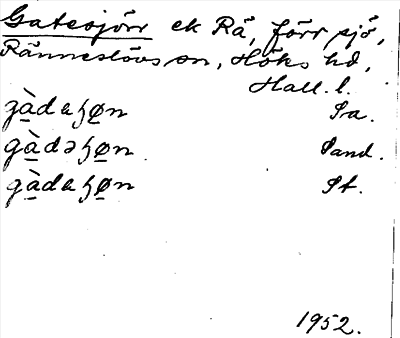 Gatesjörr ek Rä, förr sjö,
Ränneslövs sn, Höks hd,
Hall. l.
gàdaɧøn Pa.
gàdəɧøn Pand.
gàdaɧøn Pt.
1952.